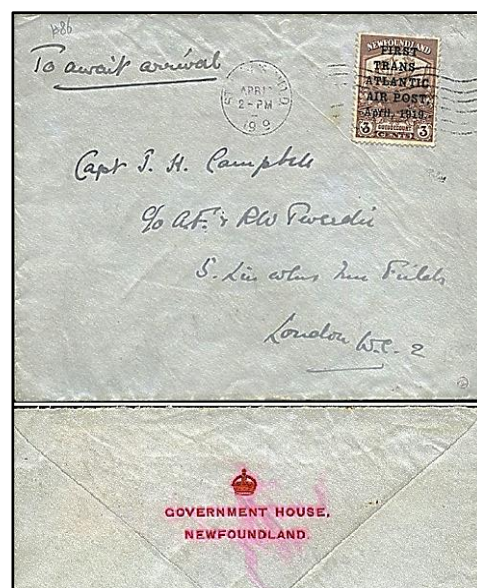 To await arrival
APR
2 - PM
NEWFOUNDLAND
FIRST
TRANS-
ATLANTIC
AIR POST,
April, 1919.
3 GUEUDECOURT 3
CENTS
Capt J. H. Campbell
c/o A.F. & R.W. Tweedie
5. Lincolns Inn Fields
London W.C. 2
GOVERNMENT HOUSE,
NEWFOUNDLAND.